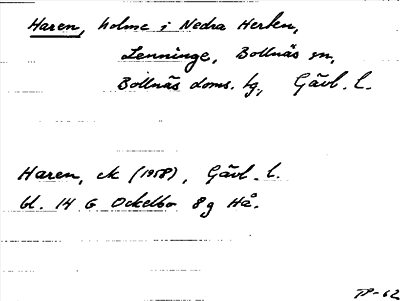 Haren, holme i Nedra Herten,
Lenninge, Bollnäs sn,
Bollnäs doms. tg, Gävl. l.
Haren, ek (1958), Gävl. l.
bl. 14 G Ockelbo 8 g Hå.
TP-62